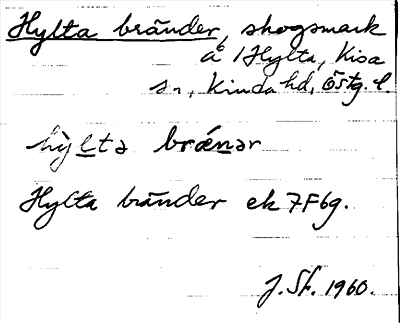 Hylta bränder, skogsmark
å 1 Hylta, Kisa
sn, Kinda hd, Östg. l.
hỳlta brǽnər
Hylta bränder ek 7F6g.
J. Sf. 1960.